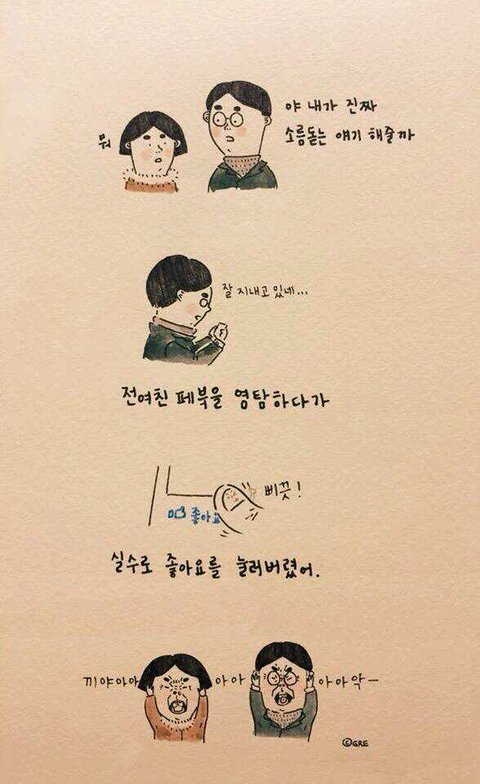 야 내가 진짜
소름돋는 얘기 해줄까
뭐
잘 지내고 있네...
전여친 페북을 염탐하다가
삐끗!
좋아요
실수로 좋아요를 눌러버렸어.
끼야아아 아아 아아악ㅡ
©GRE